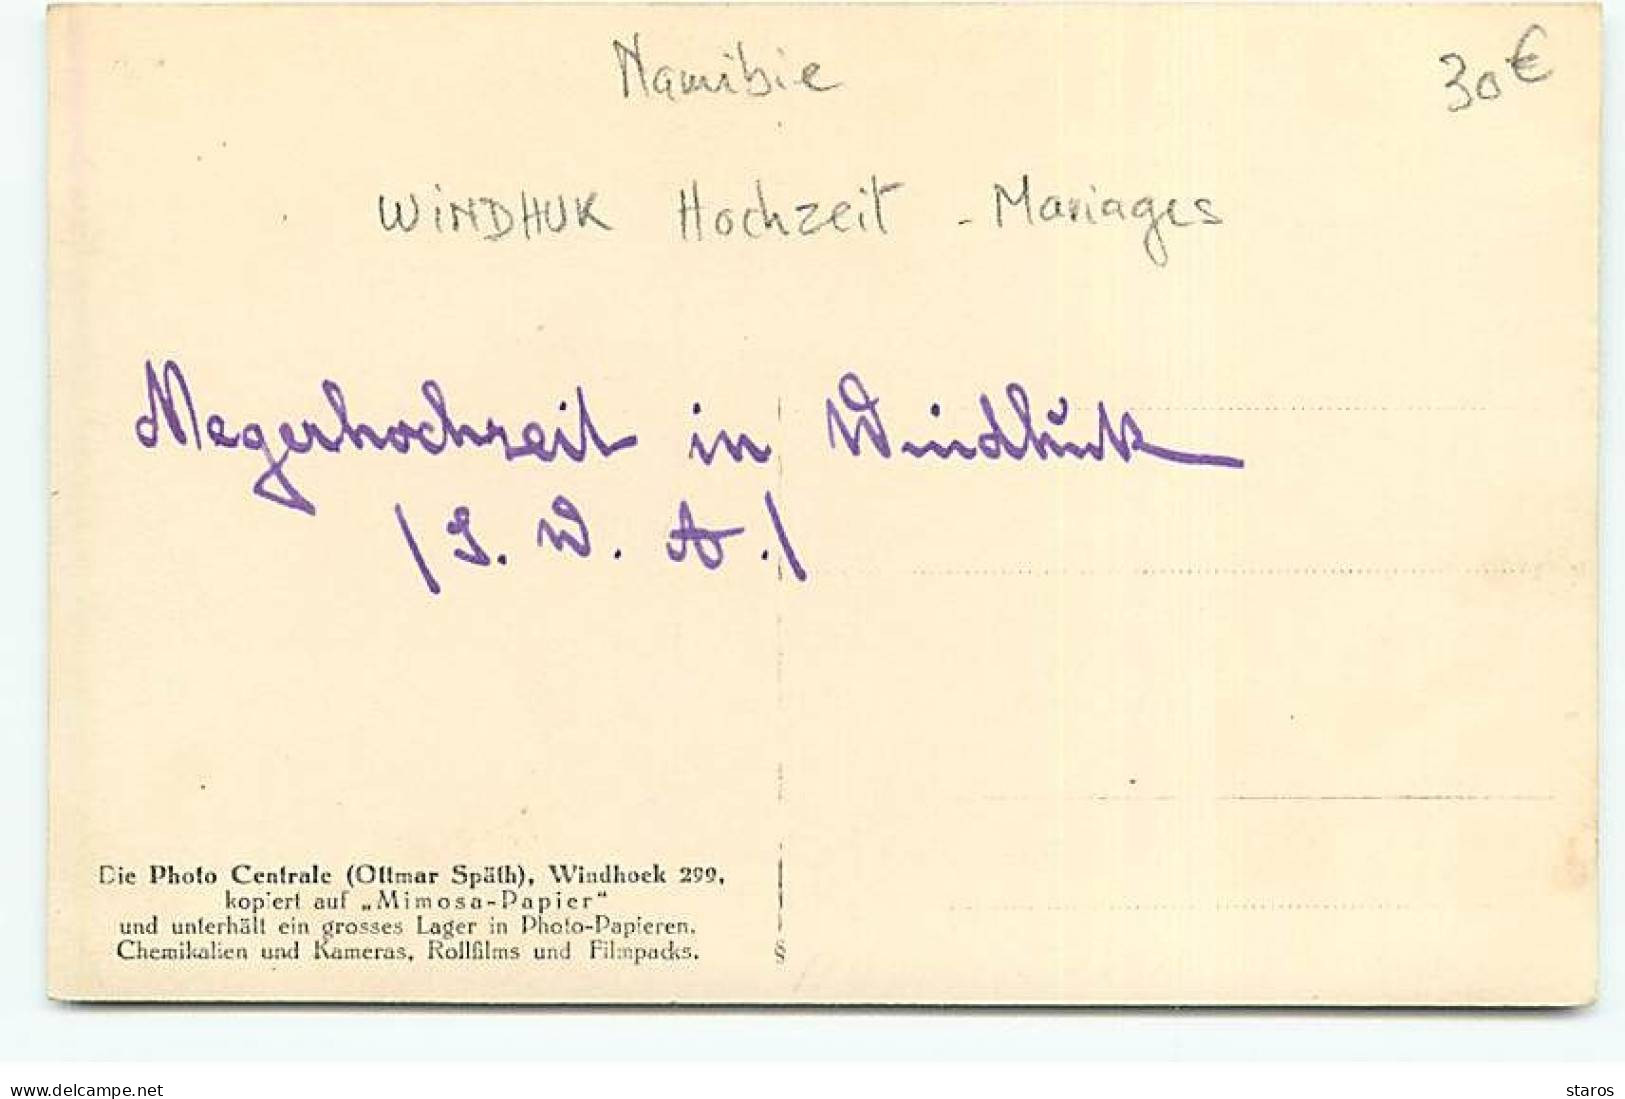 Namibie
30 €
WINDHUK Hochzeit - Mariages
Negerhochzeit in Windhuk
/S. W. A./
Die Photo Centrale (Ottmar Späth), Windhoek 299,
kopiert auf „Mimosa-Papier“
und unterhält ein grosses Lager in Photo-Papieren,
Chemikalien und Kameras, Rollfilms und Filmpacks.
§
www.delcampe.net
staros